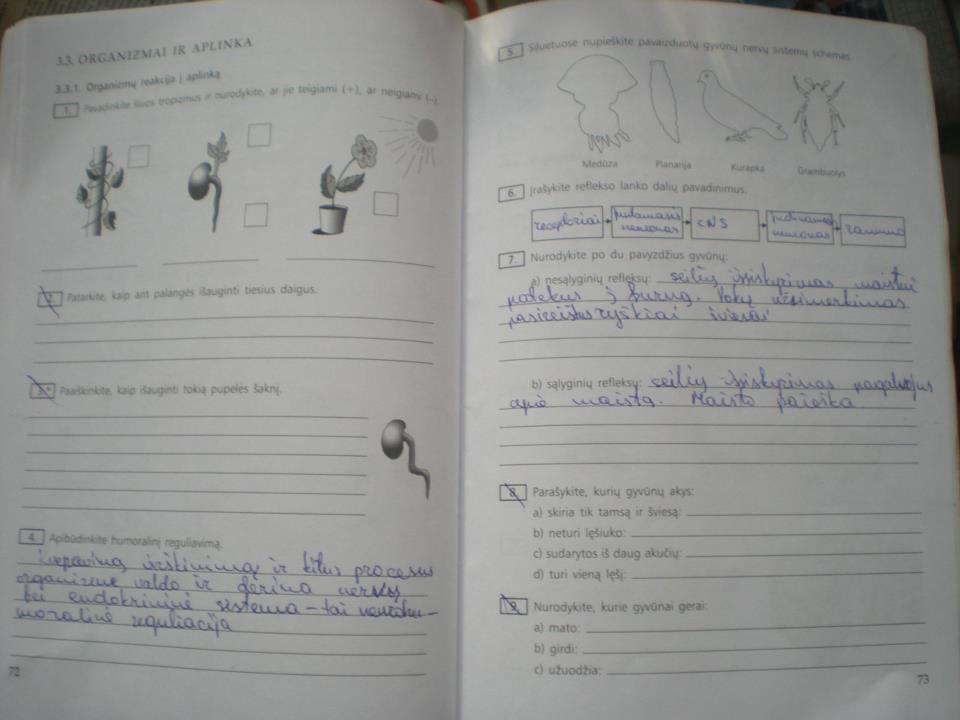 3.3. ORGANIZMAI IR APLINKA
3.3.1. Organizmų reakcija į aplinką
1. Pavadinkite šiuos tropizmus ir nurodykite, ar jie teigiami (+), ar neigiami (–).
2. Patarkite, kaip ant palangės išauginti tiesius daigus.
3.* Paaiškinkite, kaip išauginti tokią pupelės šaknį.
4. Apibūdinkite humoralinį reguliavimą.
kvėpavimą, virškinimą ir kitus procesus
organizme valdo ir derina nervų
bei endokrininė sistema – tai neurohu-
moralinė reguliacija
72
5. Siluetuose nupieškite pavaizduotų gyvūnų nervų sistemų schemas.
Medūza Planarija Kurapka Grambuolys
6. Įrašykite reflekso lanko dalių pavadinimus.
receptoriai juntamasis neuronas CNS judinamasis neuronas raumuo
7. Nurodykite po du pavyzdžius gyvūnų:
a) nesąlyginių refleksų: seilių išsiskyrimas maistui
patekus į burną. Vokų užsimerkimas
pasireiškus ryškiai šviesai
b) sąlyginių refleksų: seilių išsiskyrimas pagalvojus
apie maistą. Maisto paieška
8. Parašykite, kurių gyvūnų akys:
a) skiria tik tamsą ir šviesą:
b) neturi lęšiuko:
c) sudarytos iš daug akučių:
d) turi vieną lęšį:
9. Nurodykite, kurie gyvūnai gerai:
a) mato:
b) girdi:
c) užuodžia:
73